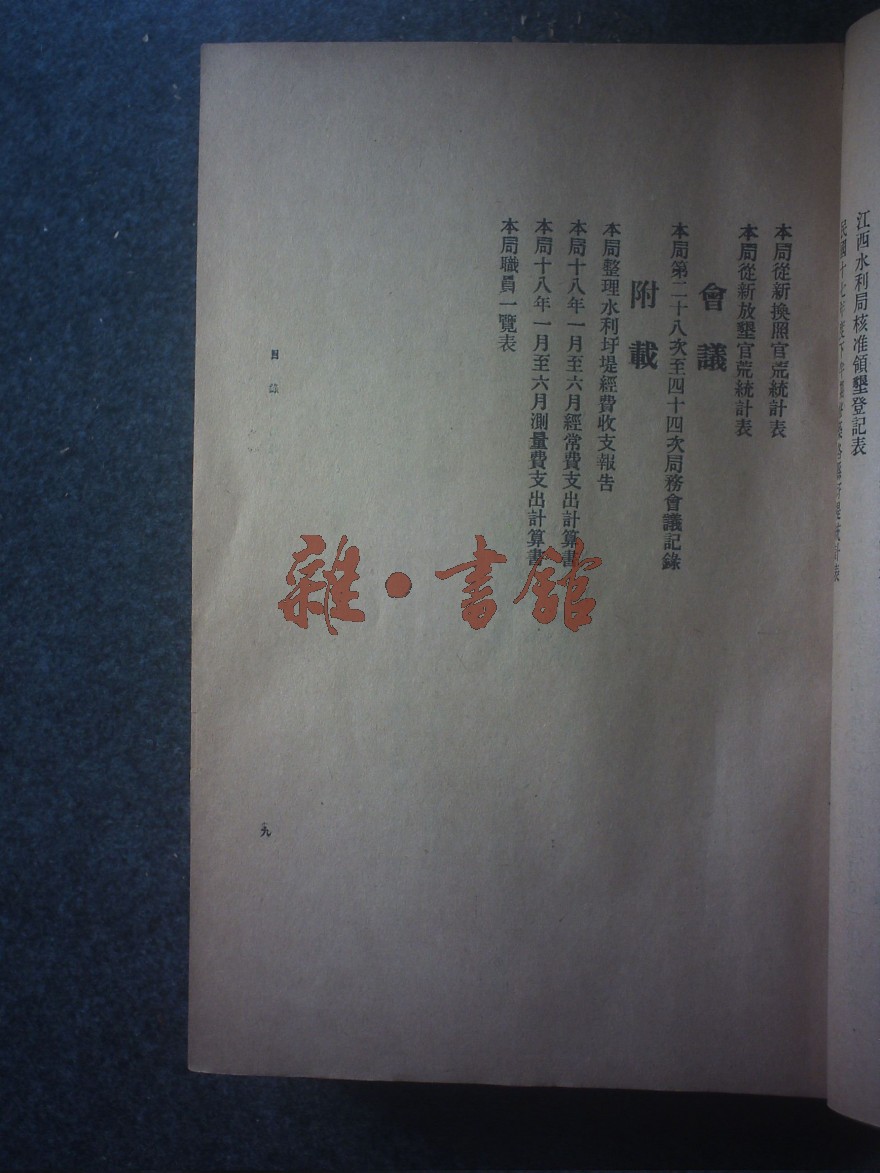 江西水利局核准領墾登記表
民國十七年度下
本局從新換照官荒統計表
本局從新放墾官荒統計表
會議
本局第二十八次至四十四次局務會議記錄
附載
本局整理水利圩堤經費收支報告
本局十八年一月至六月經常費支出計算書
本局十八年一月至六月測量費支出計算書
本局職員一覽表
目錄
九
雜·書館